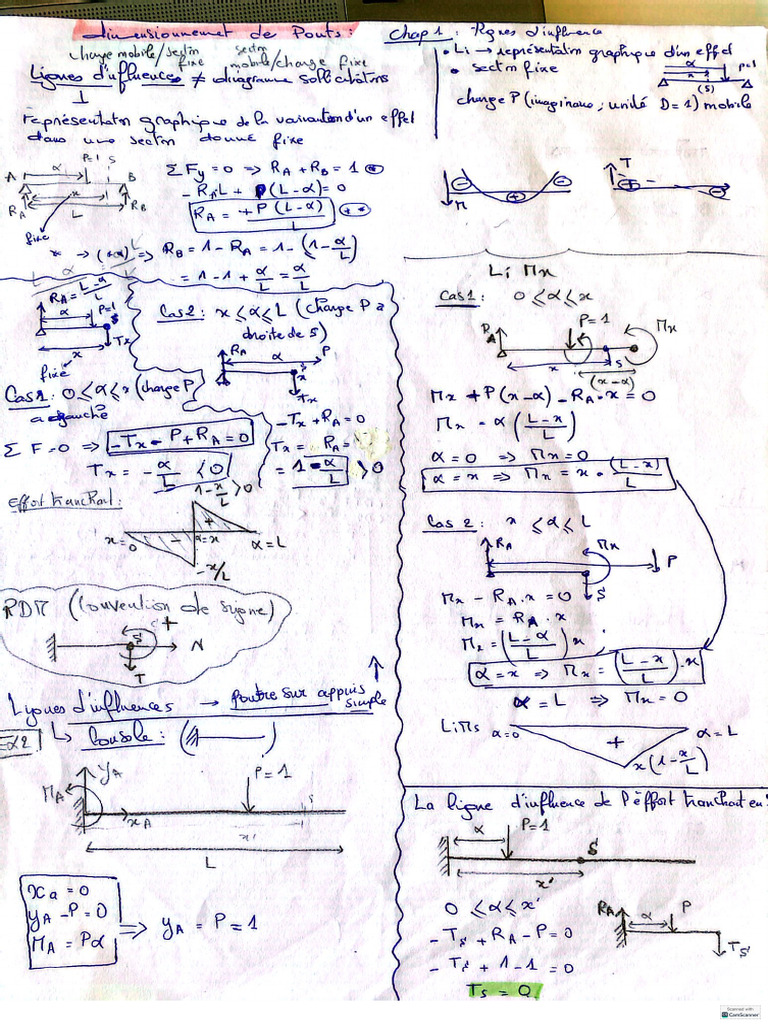 dimensionnement de Ponts :
charge mobile/section fixe
section mobile/charge fixe
Lignes d'influences ≠ diagramme sollicitations
représentation graphique de la variation d'un effet
dans une section donné fixe
A α P=1 S B
R_A x L R_B
fixe
Σ Fy = 0 ⇒ R_A + R_B = 1 *
- R_A·L + P(L-α) = 0
R_A = + P(L-α)/L **
⇒ R_B = 1 - R_A = 1 - (1 - α/L)
= 1 - 1 + α/L = α/L
R_A = L-α/L
α P=1 S
x Tx
fixe
Cas 1 : 0 ≤ α ≤ x (charge P
a gauche
Σ F = 0 ⇒ -Tx - P + R_A = 0
Tx = - α/L < 0
Cas 2 : x ≤ α ≤ L (charge P a
droite de S)
R_A α P
S
Tx
-Tx + R_A = 0
Tx = R_A =
= 1 - α/L > 0
effort tranchant :
1 - x/L > 0
x = 0 - + α = x α = L
- x/L
RDM (Convention de signe)
+
S N
T
Lignes d'influences → poutre sur appuis simple
Console :
M_A y_A P = 1
x_A x'
L
xa = 0
y_A - P = 0
M_A = Pα
⇒ y_A = P = 1
Chap 1 : lignes d'influence
• Li → représentation graphique d'un effet
• section fixe
α P=1
x
(S)
charge P (imaginaire, unité D = 1) mobile
- + -
M
T
+ -
Li Mx
Cas 1 : 0 ≤ α ≤ x
P = 1 Mx
R_A
x S
(x-α)
Mx + P(x-α) - R_A·x = 0
Mx = α (L-x/L)
α = 0 ⇒ Mx = 0
α = x ⇒ Mx = x · (L-x)/L
Cas 2 : x ≤ α ≤ L
R_A Mx P
S
Mx - R_A·x = 0
Mx = R_A · x
Mx = (L-α/L) x
α = x ⇒ Mx = (L-x/L)·x
α = L ⇒ Mx = 0
LiMs α=0 + α=L
x(1 - x/L)
La ligne d'influence de l'effort tranchant en
α P = 1
S
x'
0 ≤ α ≤ x'
- Ts' + R_A - P = 0
- Ts' + 1 - 1 = 0
Ts = 0
R_A α P
Ts'
Scanned with
CamScanner